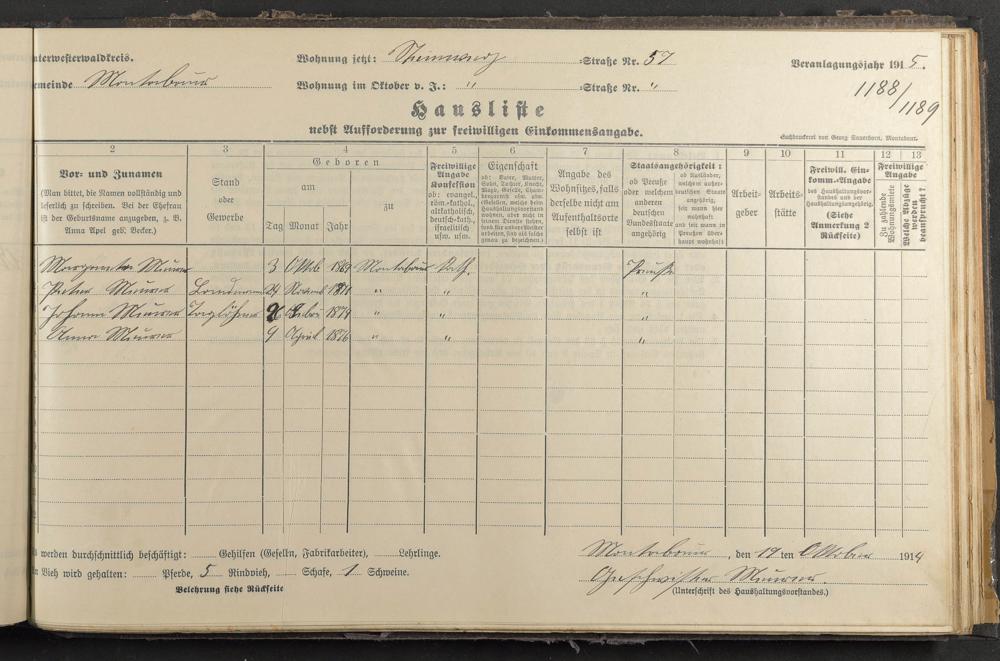 nterwesterwaldkreis.
Wohnung jetzt: Steinweg Straße Nr. 57
Veranlagungsjahr 1915.
emeinde Montabaur
Wohnung im Oktober v. J.: " Straße Nr. "
1188/1189
Hausliste
nebst Aufforderung zur freiwilligen Einkommensangabe.
Buchdruckerei von Georg Sauerborn, Montabaur.
2 3 4 5 6 7 8 9 10 11 12 13
Vor- und Zunamen
(Man bittet, die Namen vollständig und
leserlich zu schreiben. Bei der Ehefrau
ist der Geburtsname anzugeben, z. B.
Anna Apel geb. Becker.)
Stand
oder
Gewerbe
Geboren
am
zu
Tag Monat Jahr
Freiwillige
Angabe
Konfession
ob: evangel.
röm.-kathol.,
altkatholisch,
deutsch-kath.,
israelitisch
usw. usw.
Eigenschaft
ob: Vater, Mutter,
Sohn, Tochter, Knecht,
Magd, Geselle,
wohnen, aber nicht in
einem Dienste stehen,
sind als solche
genau zu bezeichnen.)
Angabe des
Wohnsitzes, falls
derselbe nicht am
Aufenthaltsorte
selbst ist
Staatsangehörigkeit:
ob Preuße
oder welchem
anderen
deutschen
Bundesstaate
angehörig
ob Ausländer,
welchem außer-
deutschen Staate
angehörig,
seit wann hier
wohnhaft
und seit wann in
Preußen über-
haupt wohnhaft
Arbeit-
geber
Arbeits-
stätte
Freiwill. Ein-
komm.-Angabe
des Haushaltungsvor-
standes und der
Haushaltungsangehörig.
(Siehe
Anmerkung 2
Rückseite)
Freiwillige
Angabe
Zu zahlende
Wohnungsmiete
Welche Abzüge
werden
beansprucht?
Margareta Meurer 3 Oktob 1869 Montabaur Kath. Preuße
Peter Meurer Landmann 24 1871 " " "
Johann Meurer Taglöhner 26 Febr 1874 " " "
Anna Meurer 9 April 1876 " " "
werden durchschnittlich beschäftigt: Gehilfen (Geselln, Fabrikarbeiter), Lehrlinge.
Montabaur, den 19ten Oktober 1914
n Vieh wird gehalten: Pferde, 5 Rindvieh, Schafe, 1 Schweine.
Geschwister Meurer.
Belehrung siehe Rückseite
(Unterschrift des Haushaltungsvorstandes.)